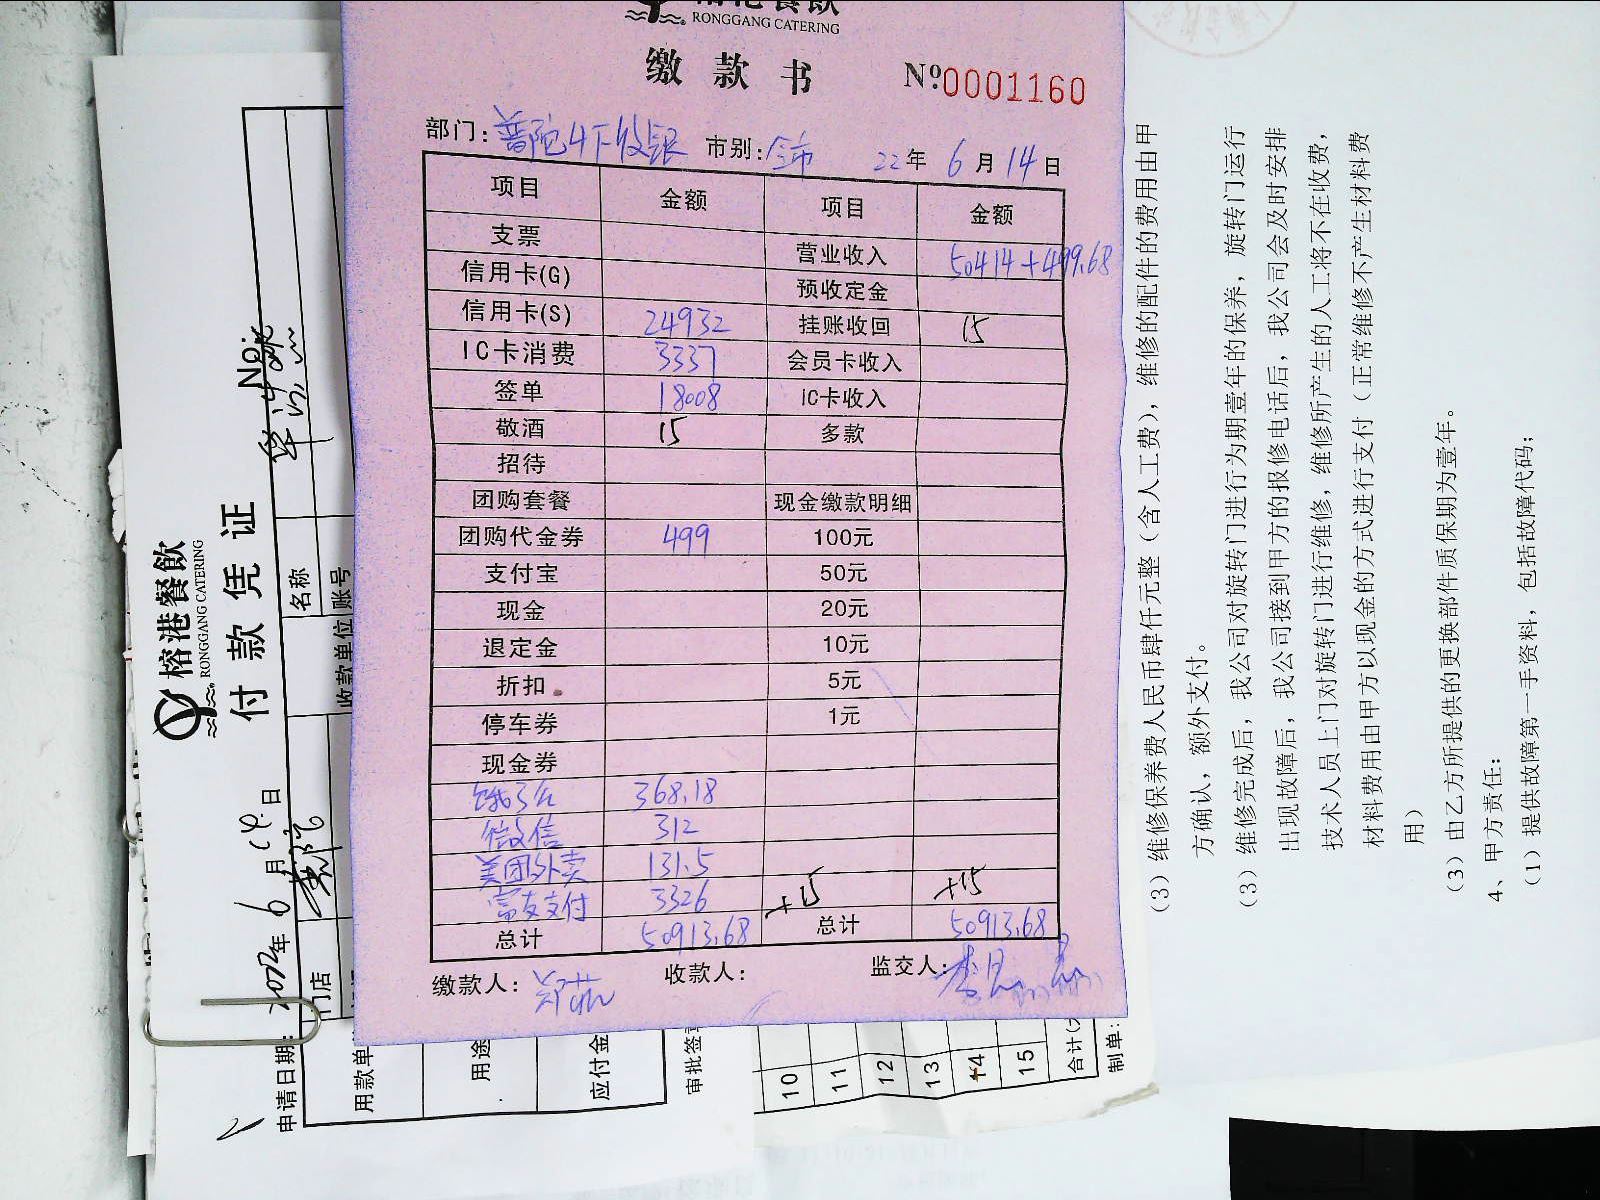 RONGGANG CATERING
缴款书 №0001160
部门: 普陀4F收银 市别: 全市 22年 6月 14日
项目 金额 项目 金额
支票 营业收入 50414+499.68
信用卡(G) 预收定金
信用卡(S) 24932 挂账收回 15
IC卡消费 3337 会员卡收入
签单 18008 IC卡收入
敬酒 15 多款
招待
团购套餐 现金缴款明细
团购代金券 499 100元
支付宝 50元
现金 20元
退定金 10元
折扣 5元
停车券 1元
现金券
饿了么 368.18
微信 312
美团外卖 131.5
富友支付 3326 +15 +15
总计 50913.68 总计 50913.68
缴款人: 收款人: 监交人:
榕港餐飲
RONGGANG CATERING
付款凭证
No:
申请日期: 2022年 6月 14日
门店
名称
收款单位
账号
用款单
用途
应付金
审批签章
10
11
12
13
14
15
合计(
制单:
(3) 维修保养费人民币肆仟元整（含人工费），维修的配件的费用由甲
方确认，额外支付。
(3) 维修完成后，我公司对旋转门进行为期壹年的保养，旋转门运行
出现故障后，我公司接到甲方的报修电话后，我公司会及时安排
技术人员上门对旋转门进行维修，维修所产生的人工将不在收费，
材料费用由甲方以现金的方式进行支付（正常维修不产生材料费
用）
(3) 由乙方所提供的更换部件质保期为壹年。
4、甲方责任：
(1) 提供故障第一手资料，包括故障代码；